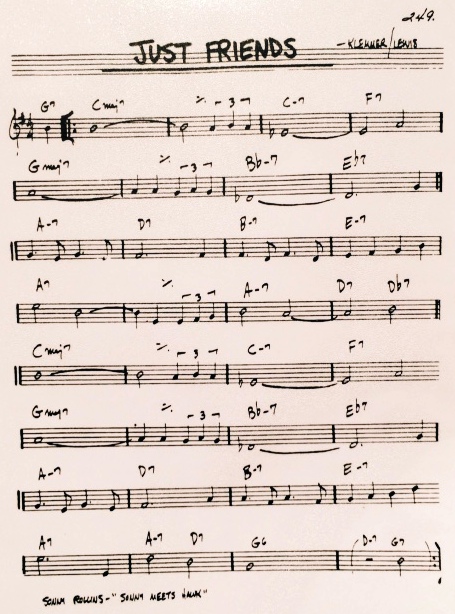 249.
JUST FRIENDS — KLEMMER/LEWIS
G7 Cmaj7 ٪ 3 C-7 F7
Gmaj7 ٪ 3 Bb-7 Eb7
A-7 D7 B-7 E-7
A7 ٪ 3 A-7 D7 Db7
Cmaj7 ٪ 3 C-7 F7
Gmaj7 ٪ 3 Bb-7 Eb7
A-7 D7 B-7 E-7
A7 A-7 D7 G6 (D-7 G7)
SONNY ROLLINS - "SONNY MEETS HAWK"